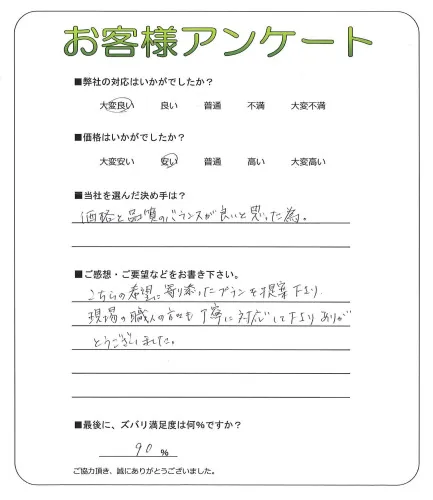 お客様アンケート
■弊社の対応はいかがでしたか？
大変良い 良い 普通 不満 大変不満
■価格はいかがでしたか？
大変安い 安い 普通 高い 大変高い
■当社を選んだ決め手は？
価格と品質のバランスが良いと思った為。
■ご感想・ご要望などをお書き下さい。
こちらの希望に寄り添ったプランを提案下さり
現場の職人の方々も丁寧に対応して下さりありが
とうございました。
■最後に、ズバリ満足度は何%ですか？
90 %
ご協力頂き、誠にありがとうございました。